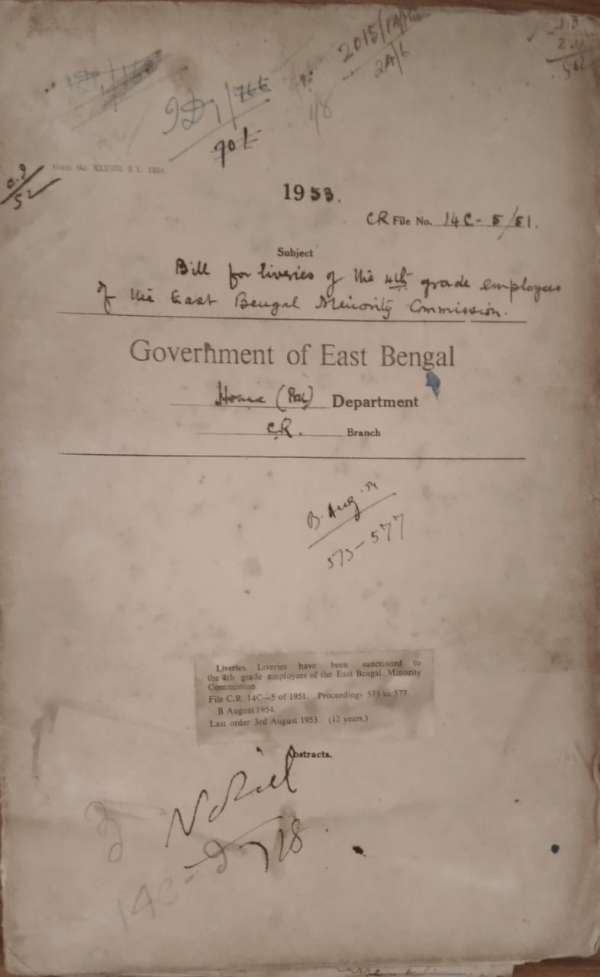 2015/
24/6
1/8
9D 1/766
901
Form No. XXXVIII
1953.
CR File No. 14C-5/51.
Subject
Bill for liveries of the 4th grade employees
of the East Bengal Minority Commission.
Government of East Bengal
Home (Pol) Department
CR. Branch
B. Aug. 54
573-577
Liveries. Liveries have been sanctioned to
the 4th grade employees of the East Bengal Minority
Commission.
File C.R. 14C—5 of 1951. Proceedings 573 to 577.
B August 1954.
Last order 3rd August 1953 (12 years.)
Abstracts.
14C-